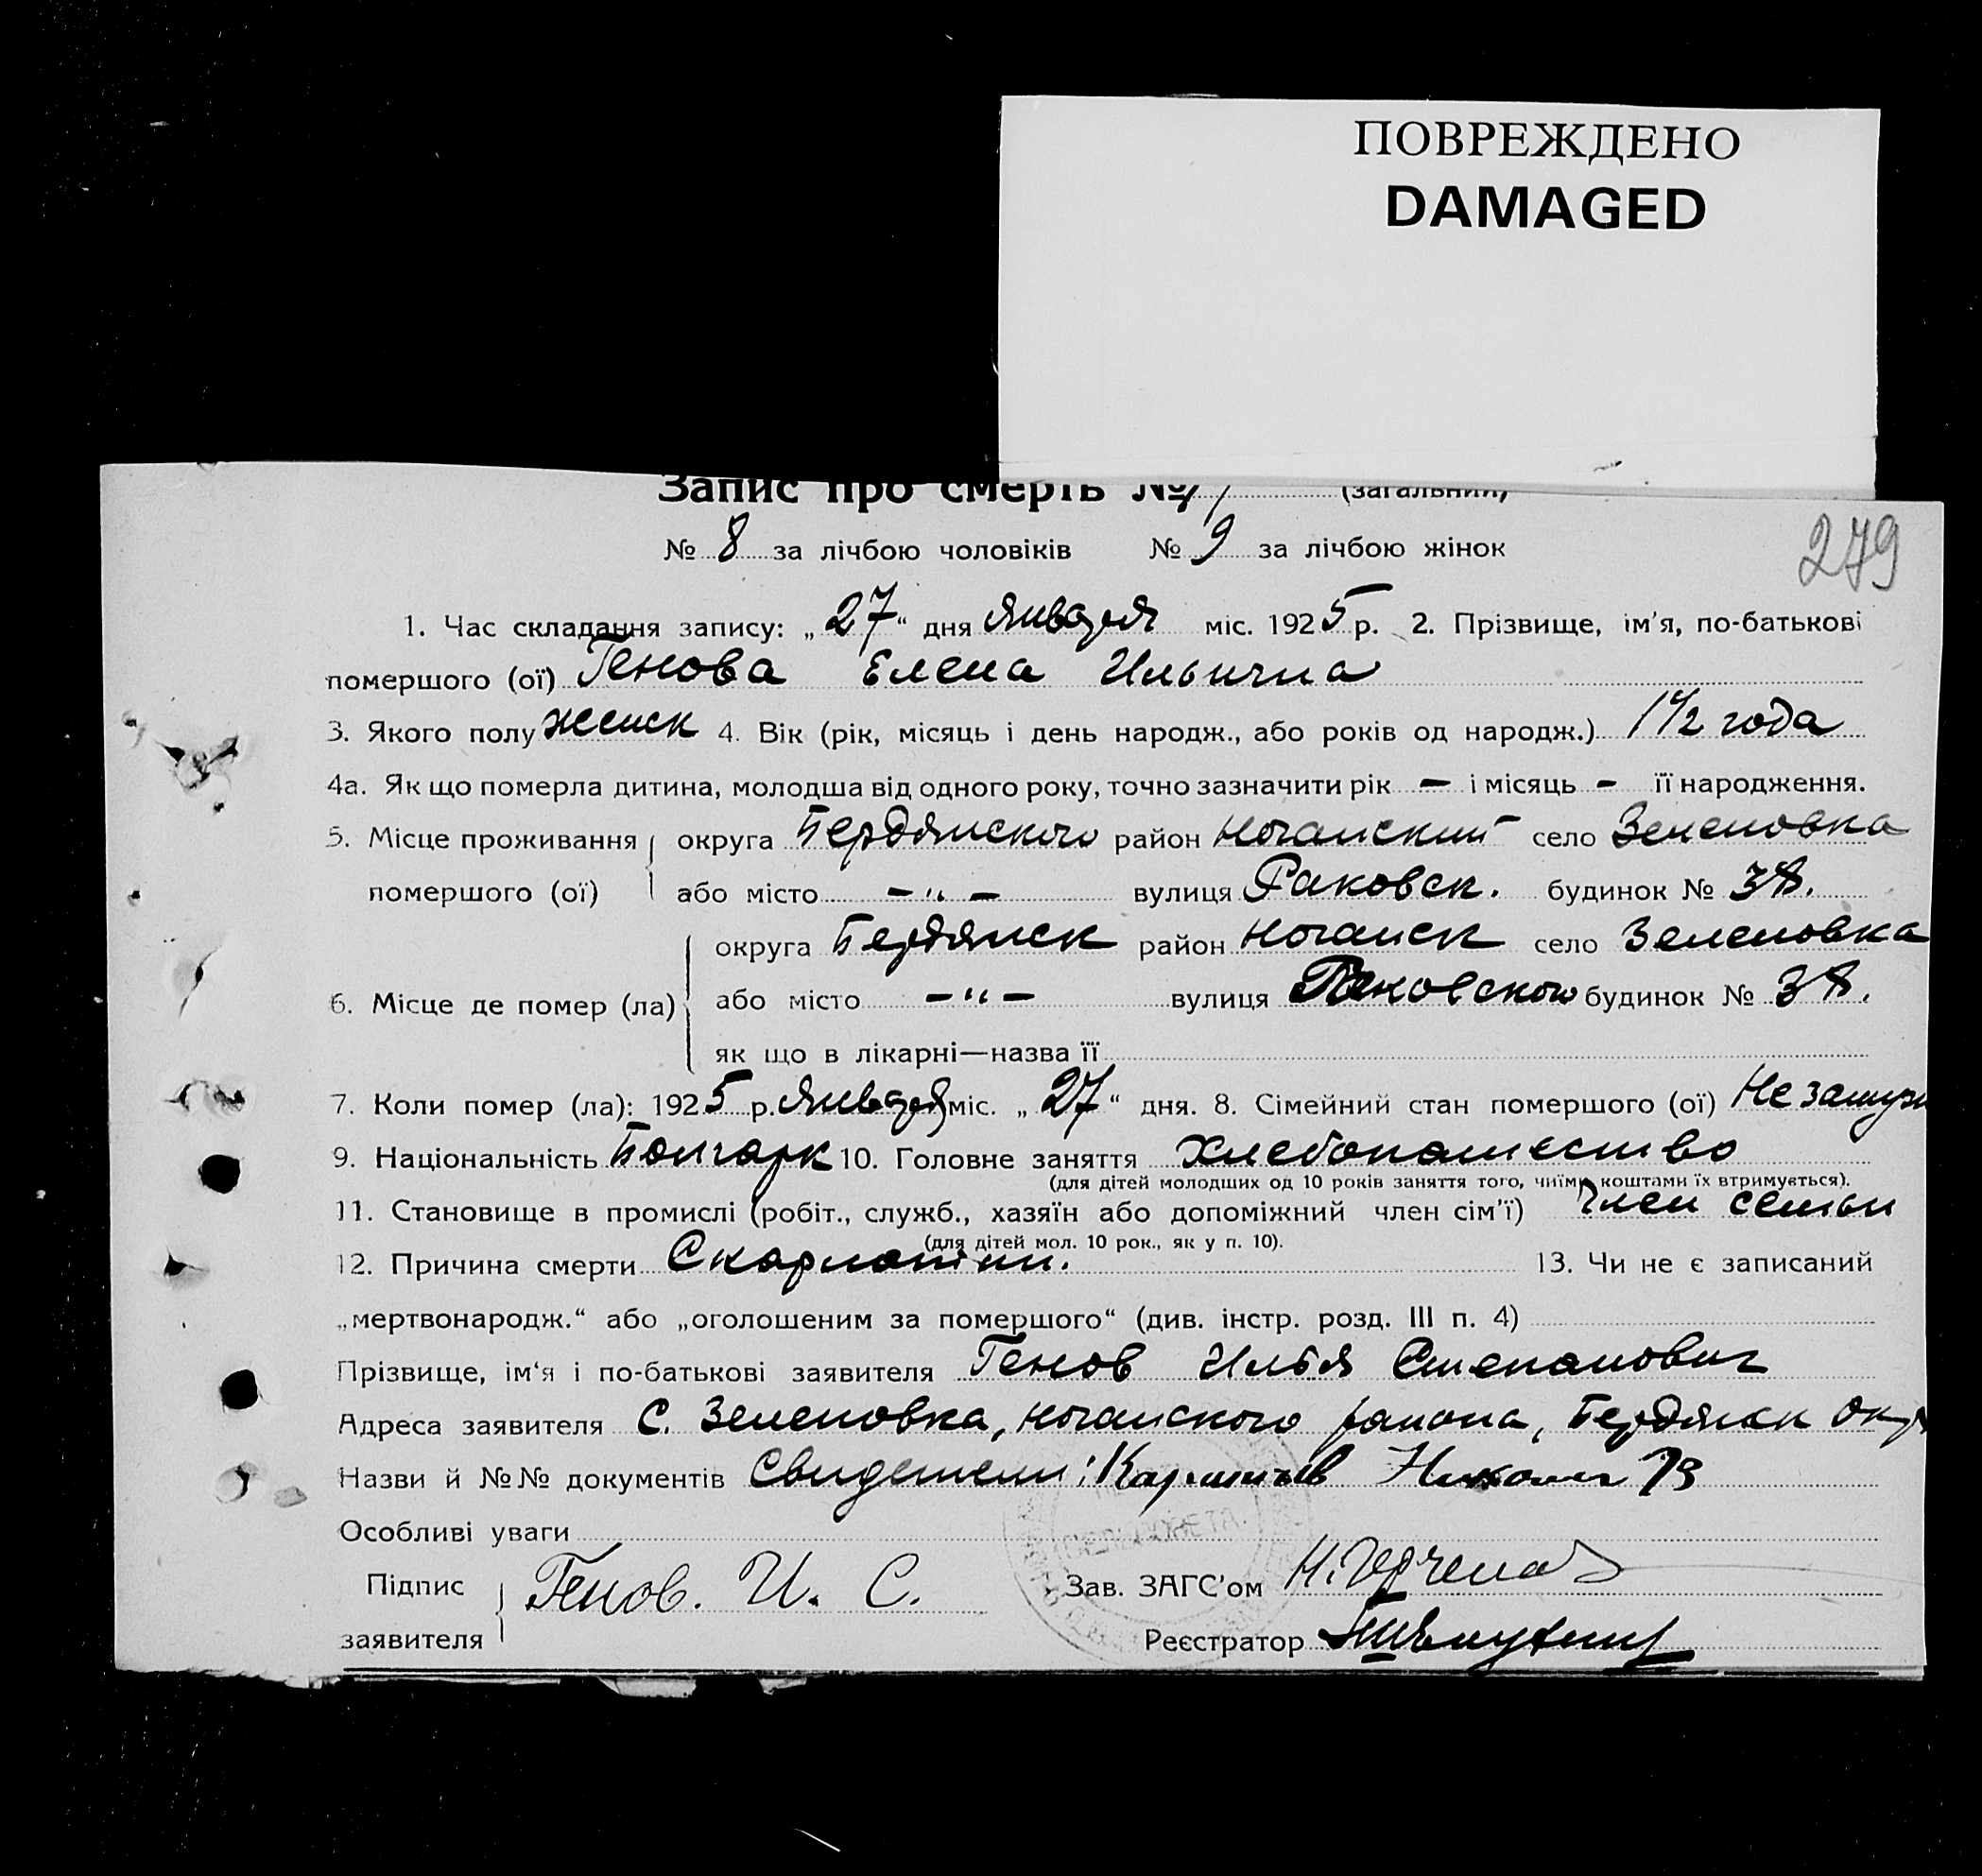 ПОВРЕЖДЕНО
DAMAGED
Запис про смерть № (загальний)
№ 8 за лічбою чоловіків № 9 за лічбою жінок
279
1. Час складання запису: „27“ дня января міс. 1925 р. 2. Прізвище, ім'я, по-батькові
помершого (ої) Генова Елена Ильична
3. Якого полу женск 4. Вік (рік, місяць і день народж., або років од народж.) 1 1/2 года
4а. Як що померла дитина, молодша від одного року, точно зазначити рік – і місяць – її народження.
5. Місце проживання округа Бердянского район Ногайский село Зеленовка
помершого (ої) або місто –"– вулиця Раковск. будинок № 38.
округа Бердянск район Ногайск село Зеленовка
6. Місце де помер (ла) або місто –"– вулиця Раковского будинок № 38.
як що в лікарні—назва її
7. Коли помер (ла): 1925 р. января міс. „27“ дня. 8. Сімейний стан помершого (ої) Незамуж
9. Національність Болгарк 10. Головне заняття Хлебопашество
(для дітей молодших од 10 років заняття того, чиїми коштами їх втримується).
11. Становище в промислі (робіт., служб., хазяїн або допоміжний член сім'ї) Член семьи
(для дітей мол. 10 рок., як у п. 10).
12. Причина смерти Скарлатин. 13. Чи не є записаний
„мертвонародж.“ або „оголошеним за помершого“ (див. інстр. розд. III п. 4)
Прізвище, ім'я і по-батькові заявителя Генов Илья Степанович
Адреса заявителя С. Зеленовка, Ногайского района, Бердянск Окр
Назви й №№ документів Свидетели: Николай
Особливі уваги
Підпис заявителя Генов. И. С.
Зав. ЗАГС'ом Н.
Реєстратор